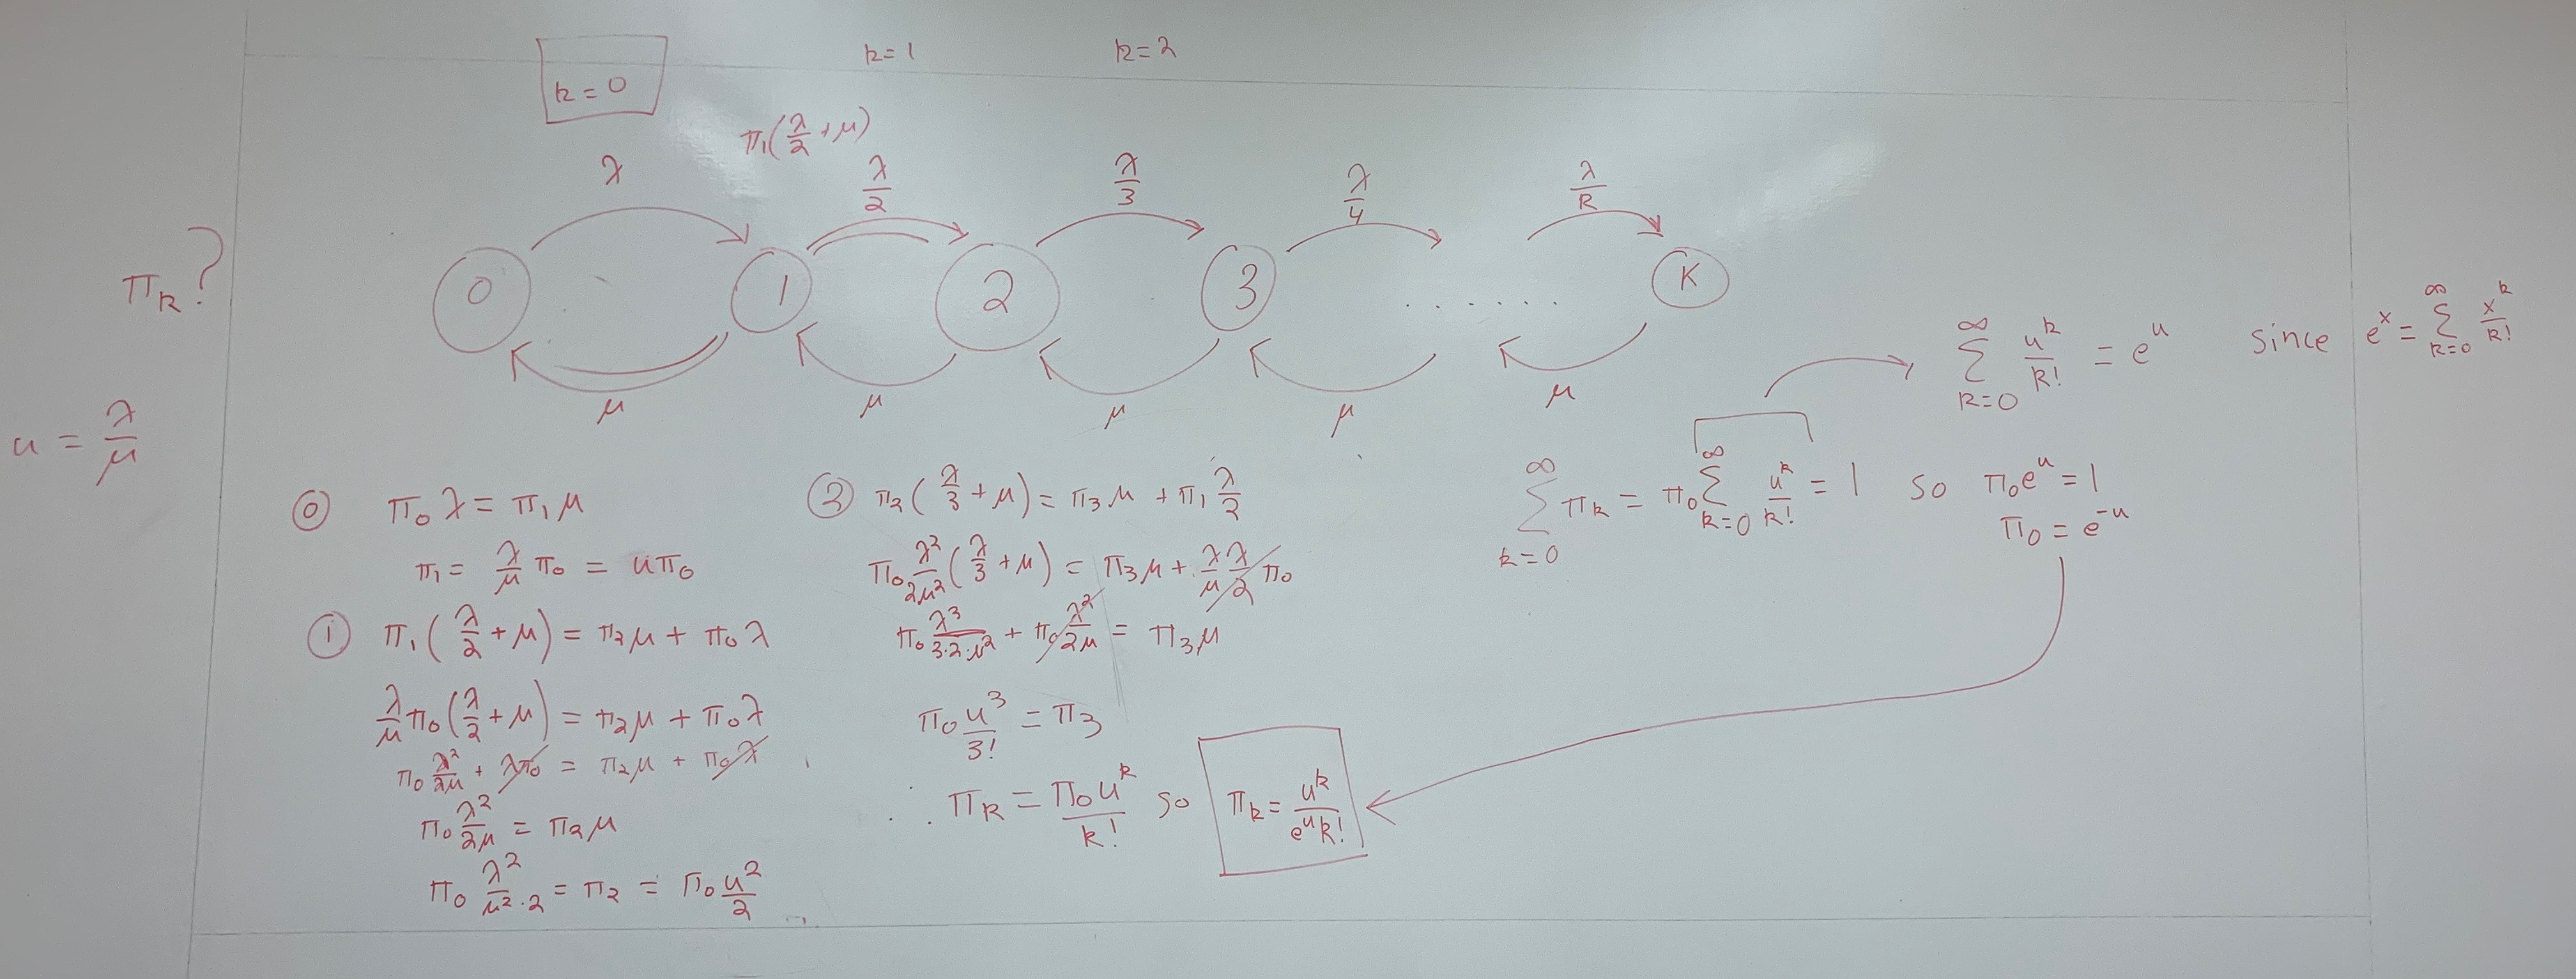 k=0
k=1
k=2
π₁(λ/2 + μ)
λ
λ/2
λ/3
λ/4
λ/k
0
1
2
3
. . . . . .
K
μ
μ
μ
μ
μ
πₖ?
u = λ/μ
⓪ π₀λ = π₁μ
π₁ = λ/μ π₀ = uπ₀
① π₁(λ/2 + μ) = π₂μ + π₀λ
λ/μ π₀(λ/2 + μ) = π₂μ + π₀λ
π₀ λ²/2μ + λπ₀ = π₂μ + π₀λ
π₀ λ²/2μ = π₂μ
π₀ λ²/μ²·2 = π₂ = π₀ u²/2
② π₂(λ/3 + μ) = π₃μ + π₁ λ/2
π₀ λ²/2μ² (λ/3 + μ) = π₃μ + λ/μ λ/2 π₀
π₀ λ³/3·2·μ² + π₀ λ²/2μ = π₃μ
π₀ u³/3! = π₃
∴ πₖ = π₀uᵏ/k! so πₖ = uᵏ/eᵘk!
∑_{k=0}^{∞} uᵏ/k! = eᵘ since eˣ = ∑_{k=0}^{∞} xᵏ/k!
∑_{k=0}^{∞} πₖ = π₀ ∑_{k=0}^{∞} uᵏ/k! = 1 so π₀eᵘ = 1
π₀ = e⁻ᵘ